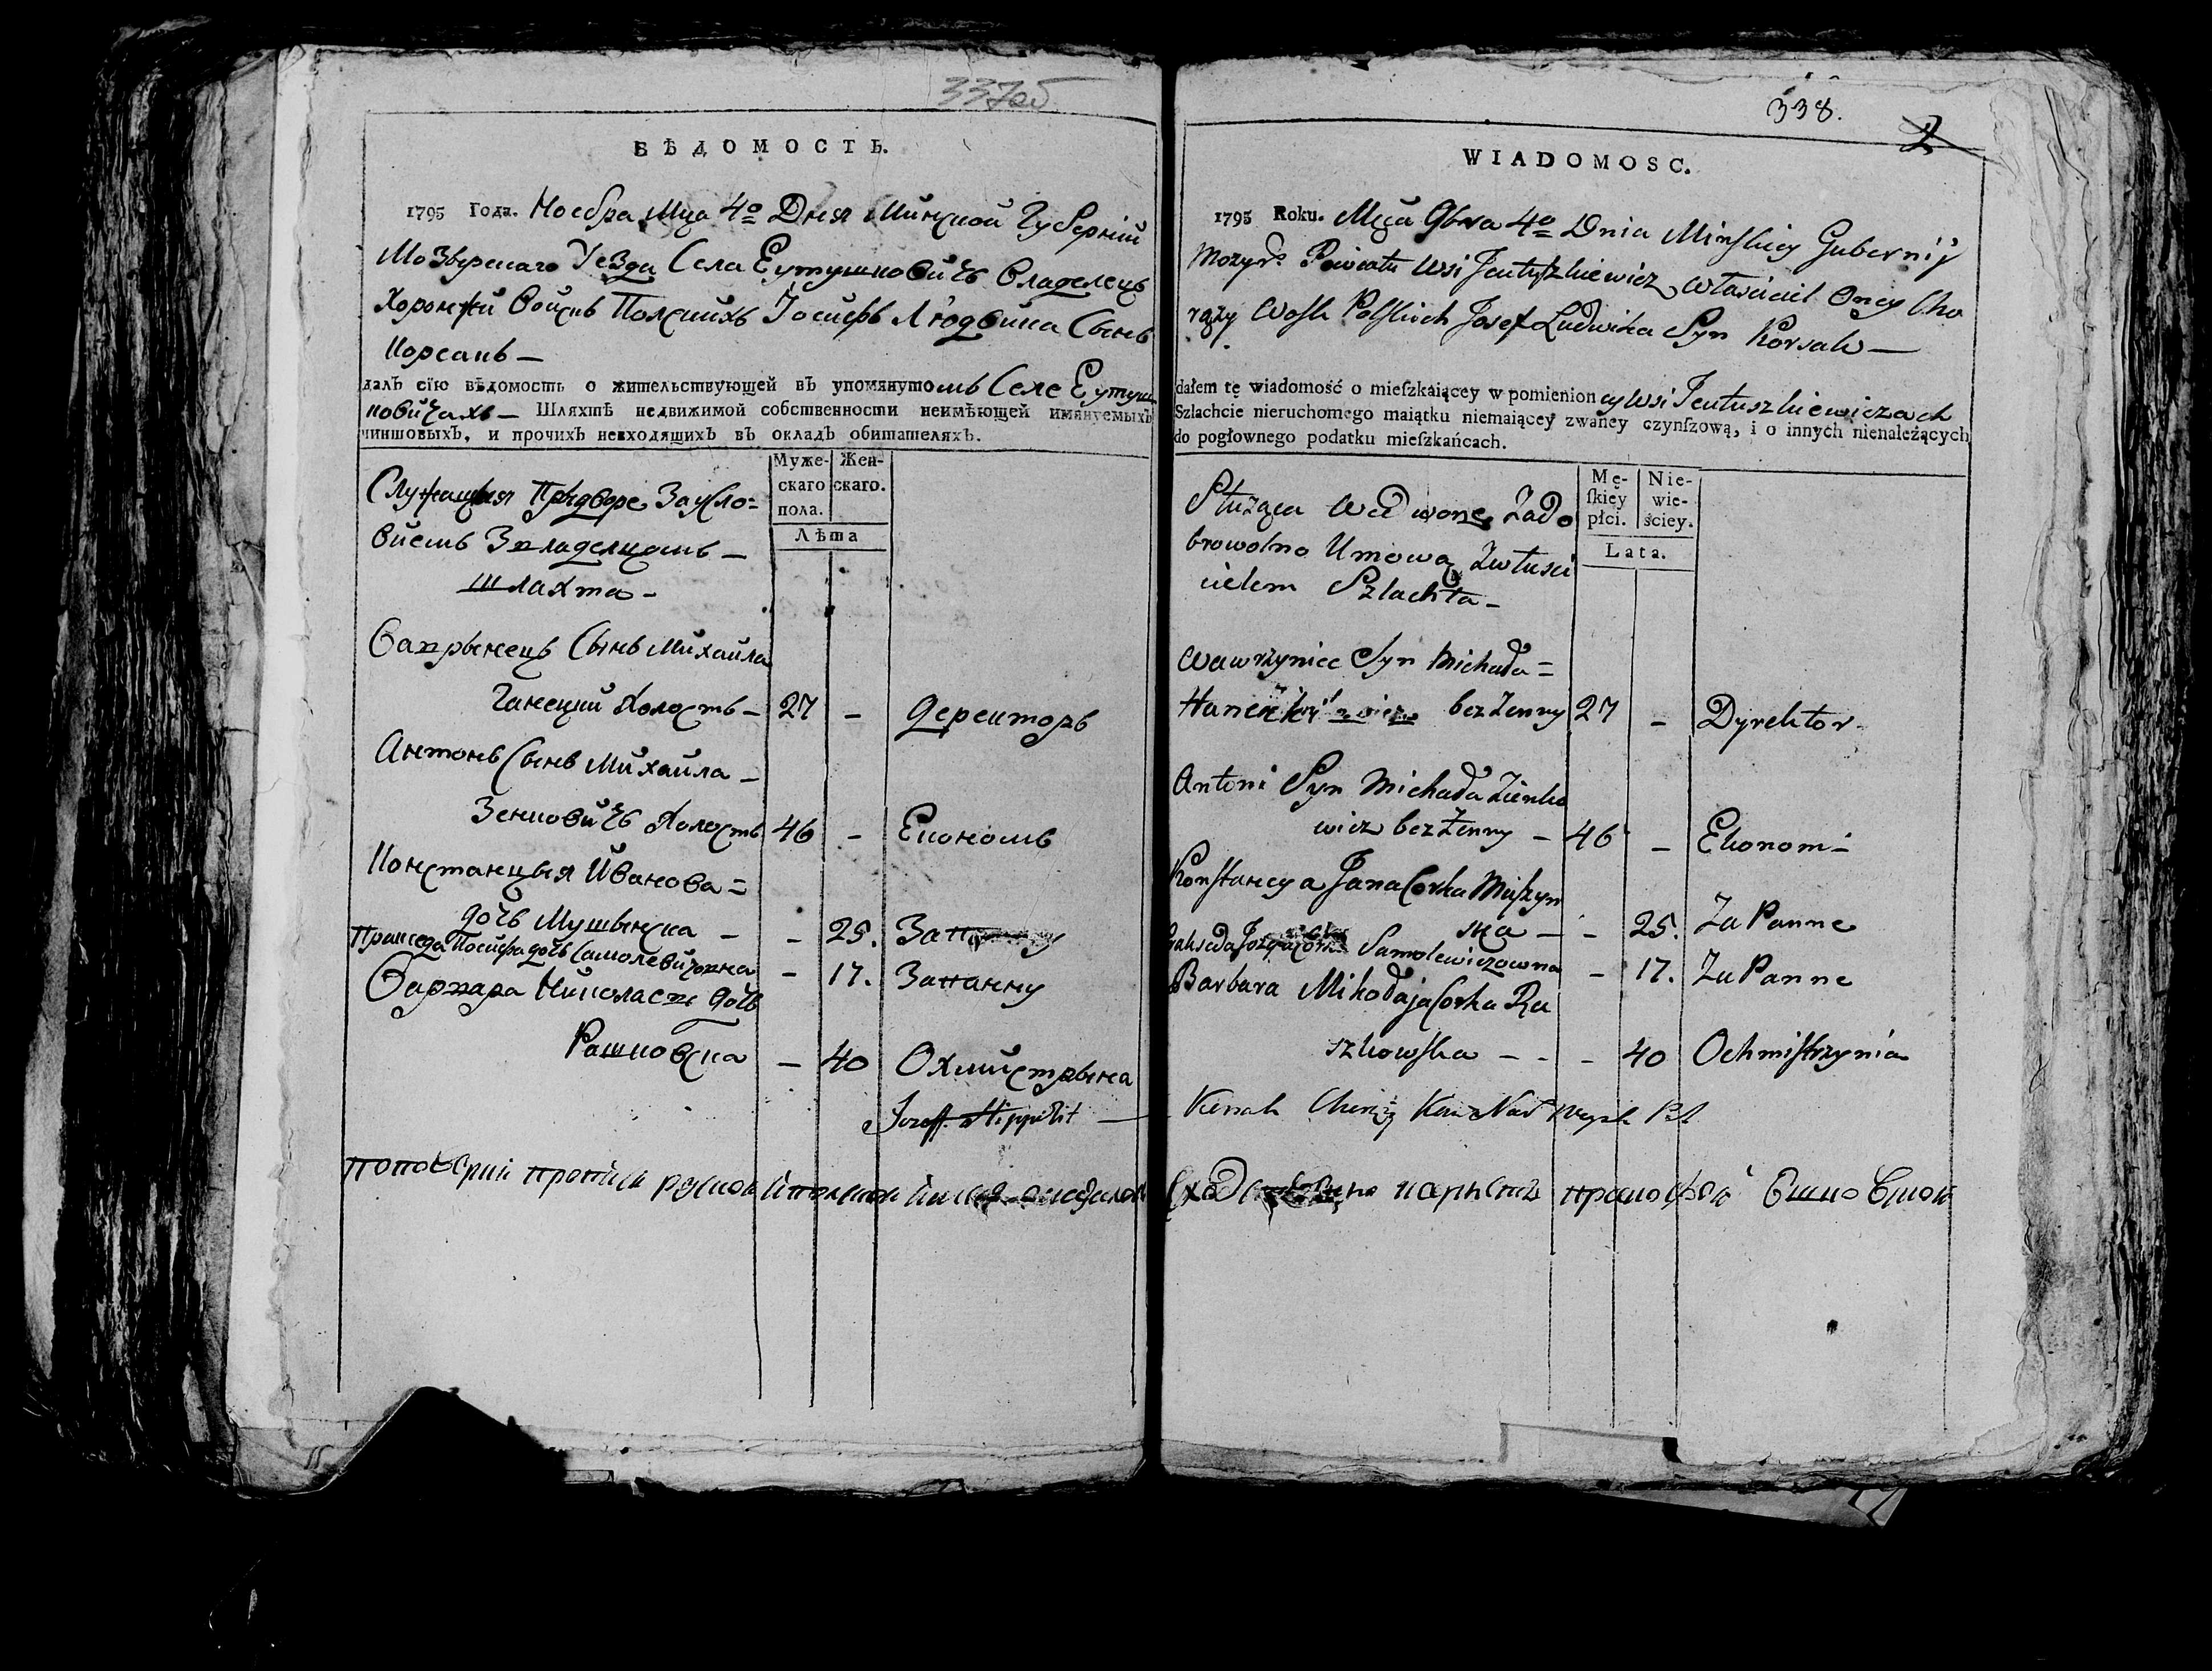 337об
ВѢДОМОСТЬ.
1795 Года. Ноебра Мца 4о Дня Минской Губерній
Мозверскаго Уезда Села Еутушковичъ Владелецъ
Хоронжи Войскъ Полскихъ Іосифъ Людвика Сынъ
Корсакъ —
далъ сїю вѣдомость о жительствующей въ упомянутомъ Селе Еутуш
ковичахъ — Шляхтѣ недвижимой собственности неимѣющей имянуемыхъ
чиншовыхъ, и прочихъ невходящихъ въ окладъ обитателяхъ.
Муже- Жен-
скаго скаго.
пола.
Лѣта
Служащыя Придворе Заусло=
виемъ Звладелцомъ —
шлахта —
Ваврынецъ Сынъ Михаила
Ганецкий Холостъ — 27 — Деректоръ
Антонъ Сынъ Михаила —
Зенковичъ Холостъ 46 — Економъ
Констанцыя Иванова =
дочь Мушынска — — 25. За
Пракседа Иосифа дочь Самолевичовна — 17. Запанну
Варвара Николаева дочь
Рашковска — 40 Охмистрына
Jozeff Hippolit —
338.
2
WIADOMOSC.
1795 Roku. Mca 9bra 4o Dnia Minskiey Gubernij
Mozyrs Powiatu Wsi Jeutuszkiewicz, własciciel Oney Cho
rąży Woysk Polskich Josef Ludwika Syn Korsak —
dałem tę wiadomość o mieſzkaiącey w pomienioney Wsi Jeutuszkiewiczach
Szlachcie nieruchomego maiątku niemaiącey zwaney czynſzową, i o innych nienależących
do pogłownego podatku mieſzkańcach.
Mę- Nie-
ſkiey wie-
płci. ściey.
Lata.
Służąca We Dworze Zado
browolno Umową Zwłasci
cielem Szlachta —
Wawrzyniec Syn Michała =
Haniecki bez Zenny 27 — Dyrektor —
Antoni Syn Michała Zienko
wicz bez Zenny — 46 — Ekonom —
Konstancya Jana Corka Muszyn
ska — — 25. Za Panne
Prakseda Jozefa Samolewiczowna — 17. Za Panne
Barbara Mikołaja Corka Ra
szkowska — — — 40 Ochmistrzynia